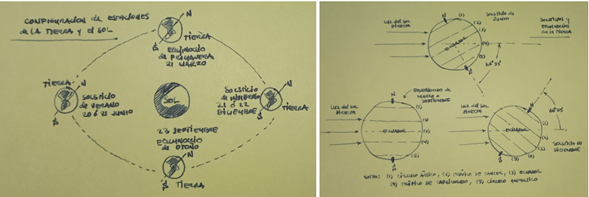 CONFIGURACIÓN de ESTACIONES
de LA TIERRA y el SOL
N
TIERRA
S
EQUINOCCIO
de PRIMAVERA
21 MARZO
TIERRA
N
S
SOLSTICIO
de VERANO
20 ó 21 JUNIO
SOL
SOLSTICIO
de INVIERNO
21 ó 22
DICIEMBRE
N
TIERRA
S
23 SEPTIEMBRE
EQUINOCCIO
de OTOÑO
N
S
TIERRA
LUZ del SOL
DIRECTA
SOLSTICIO de
JUNIO
SOLSTICIOS y
EQUINOCCIOS
de la TIERRA
ECUADOR
EQUINOCCIO de
MARZO o
SEPTIEMBRE
LUZ del SOL
DIRECTA
ECUADOR
LUZ del SOL
DIRECTA
ECUADOR
SOLSTICIO de
DICIEMBRE
NOTAS: (1) CÍRCULO ÁRTICO, (2) TRÓPICO DE CÁNCER, (3) ECUADOR
(4) TRÓPICO DE CAPRICORNIO, (5) CÍRCULO ANTÁRTICO